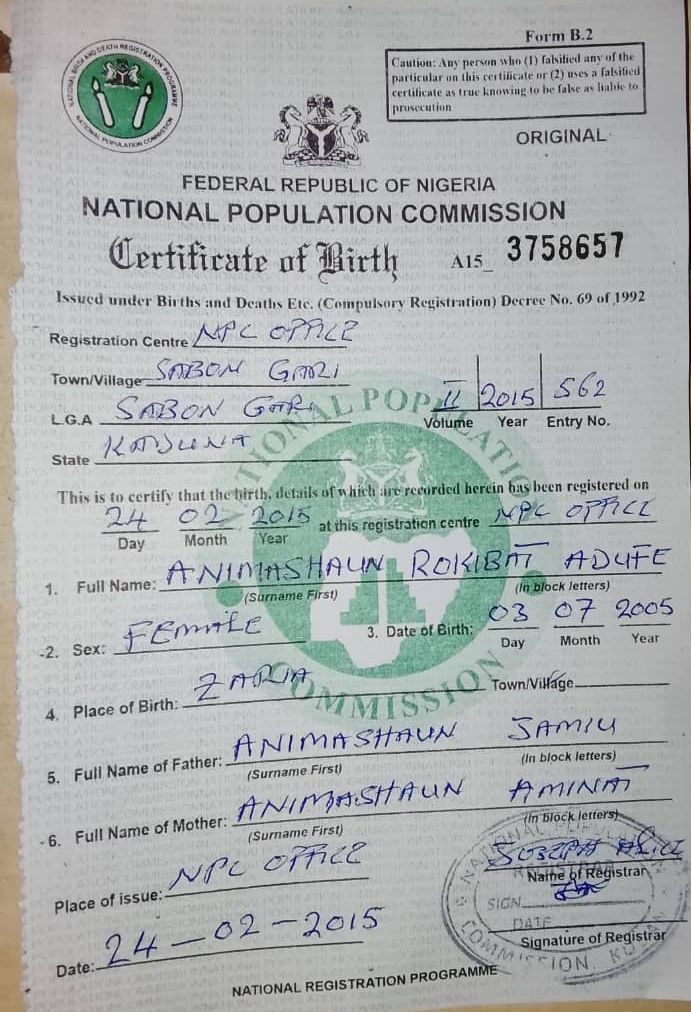 Form B.2
Caution: Any person who (1) falsified any of the
particular on this certificate or (2) uses a falsified
certificate as true knowing to be false as liable to
prosecution
NATIONAL BIRTH AND DEATH REGISTRATION PROGRAMME
NATIONAL POPULATION COMMISSION
ORIGINAL
FEDERAL REPUBLIC OF NIGERIA
NATIONAL POPULATION COMMISSION
Certificate of Birth A15_ 3758657
Issued under Births and Deaths Etc. (Compulsory Registration) Decree No. 69 of 1992
Registration Centre NPC OFFICE
Town/Village SABON GARI
L.G.A SABON GARI II 2015 562
Volume Year Entry No.
State KADUNA
NATIONAL POPULATION COMMISSION
This is to certify that the birth, details of which are recorded herein has been registered on
24 02 2015 at this registration centre NPC OFFICE
Day Month Year
1. Full Name: ANIMASHAUN ROKIBAT ADUFE
(Surname First) (In block letters)
2. Sex: FEMALE 3. Date of Birth: 03 07 2005
Day Month Year
4. Place of Birth: ZARIA Town/Village
5. Full Name of Father: ANIMASHAUN JAMIU
(Surname First) (In block letters)
6. Full Name of Mother: ANIMASHAUN AMINAT
(Surname First) (In block letters)
Place of issue: NPC OFFICE
Name of Registrar
NATIONAL
REGISTRAR
SIGN
DATE
COMMISSION
Signature of Registrar
Date: 24-02-2015
NATIONAL REGISTRATION PROGRAMME